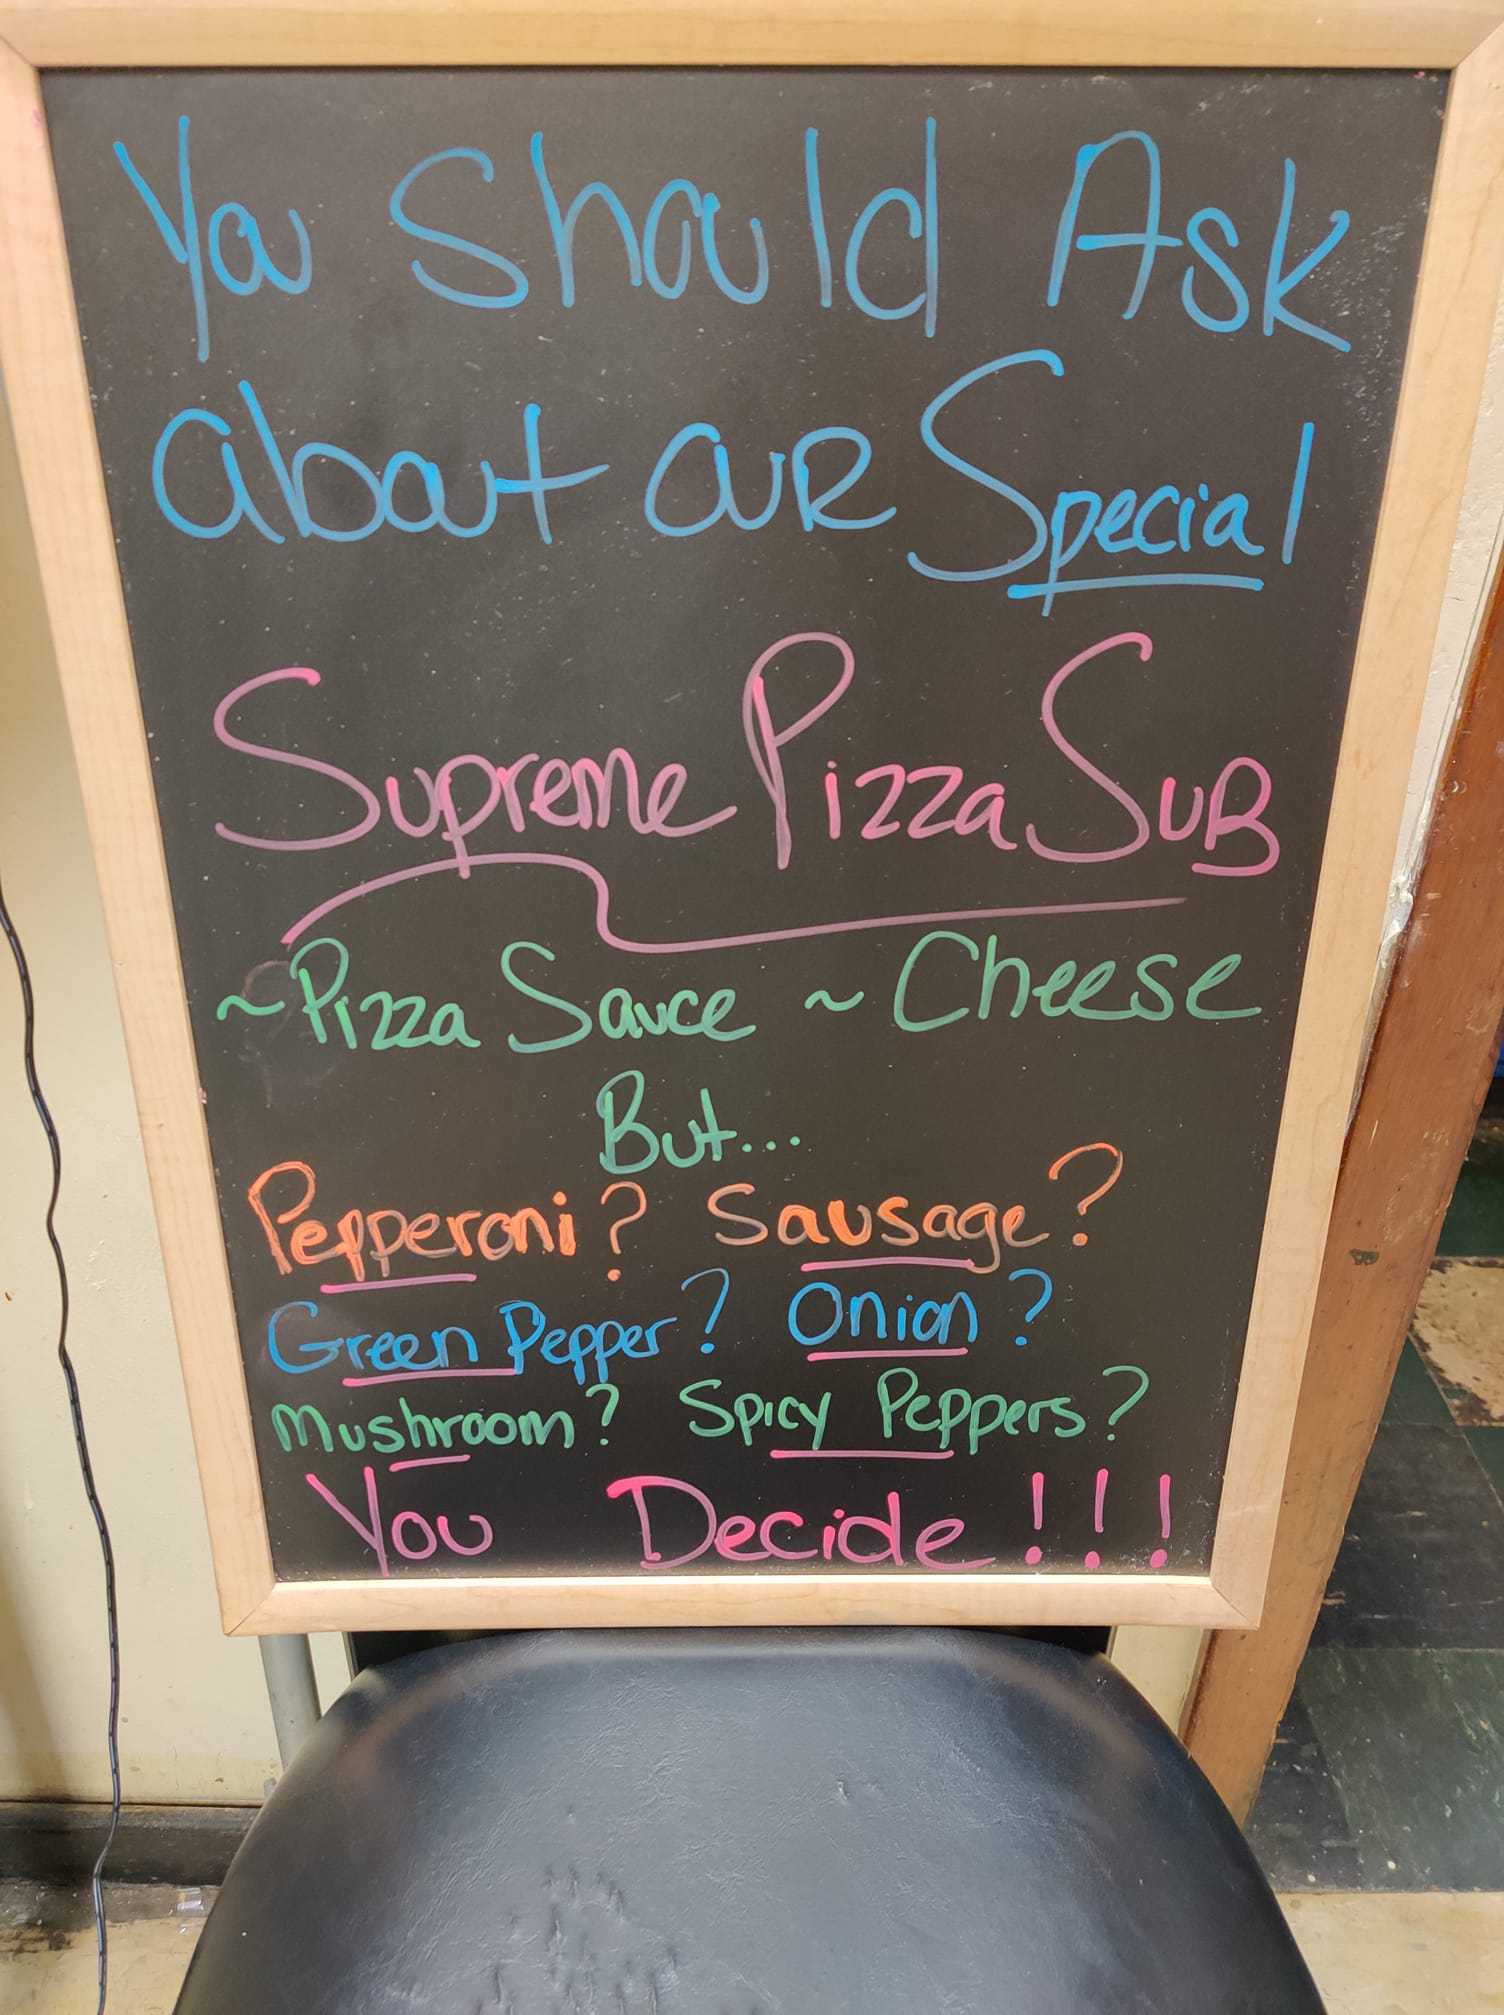 You Should Ask
about OUR Special
Supreme Pizza SuB
~Pizza Sauce ~ Cheese
But...
Pepperoni? Sausage?
Green Pepper? Onion?
Mushroom? Spicy Peppers?
You Decide!!!